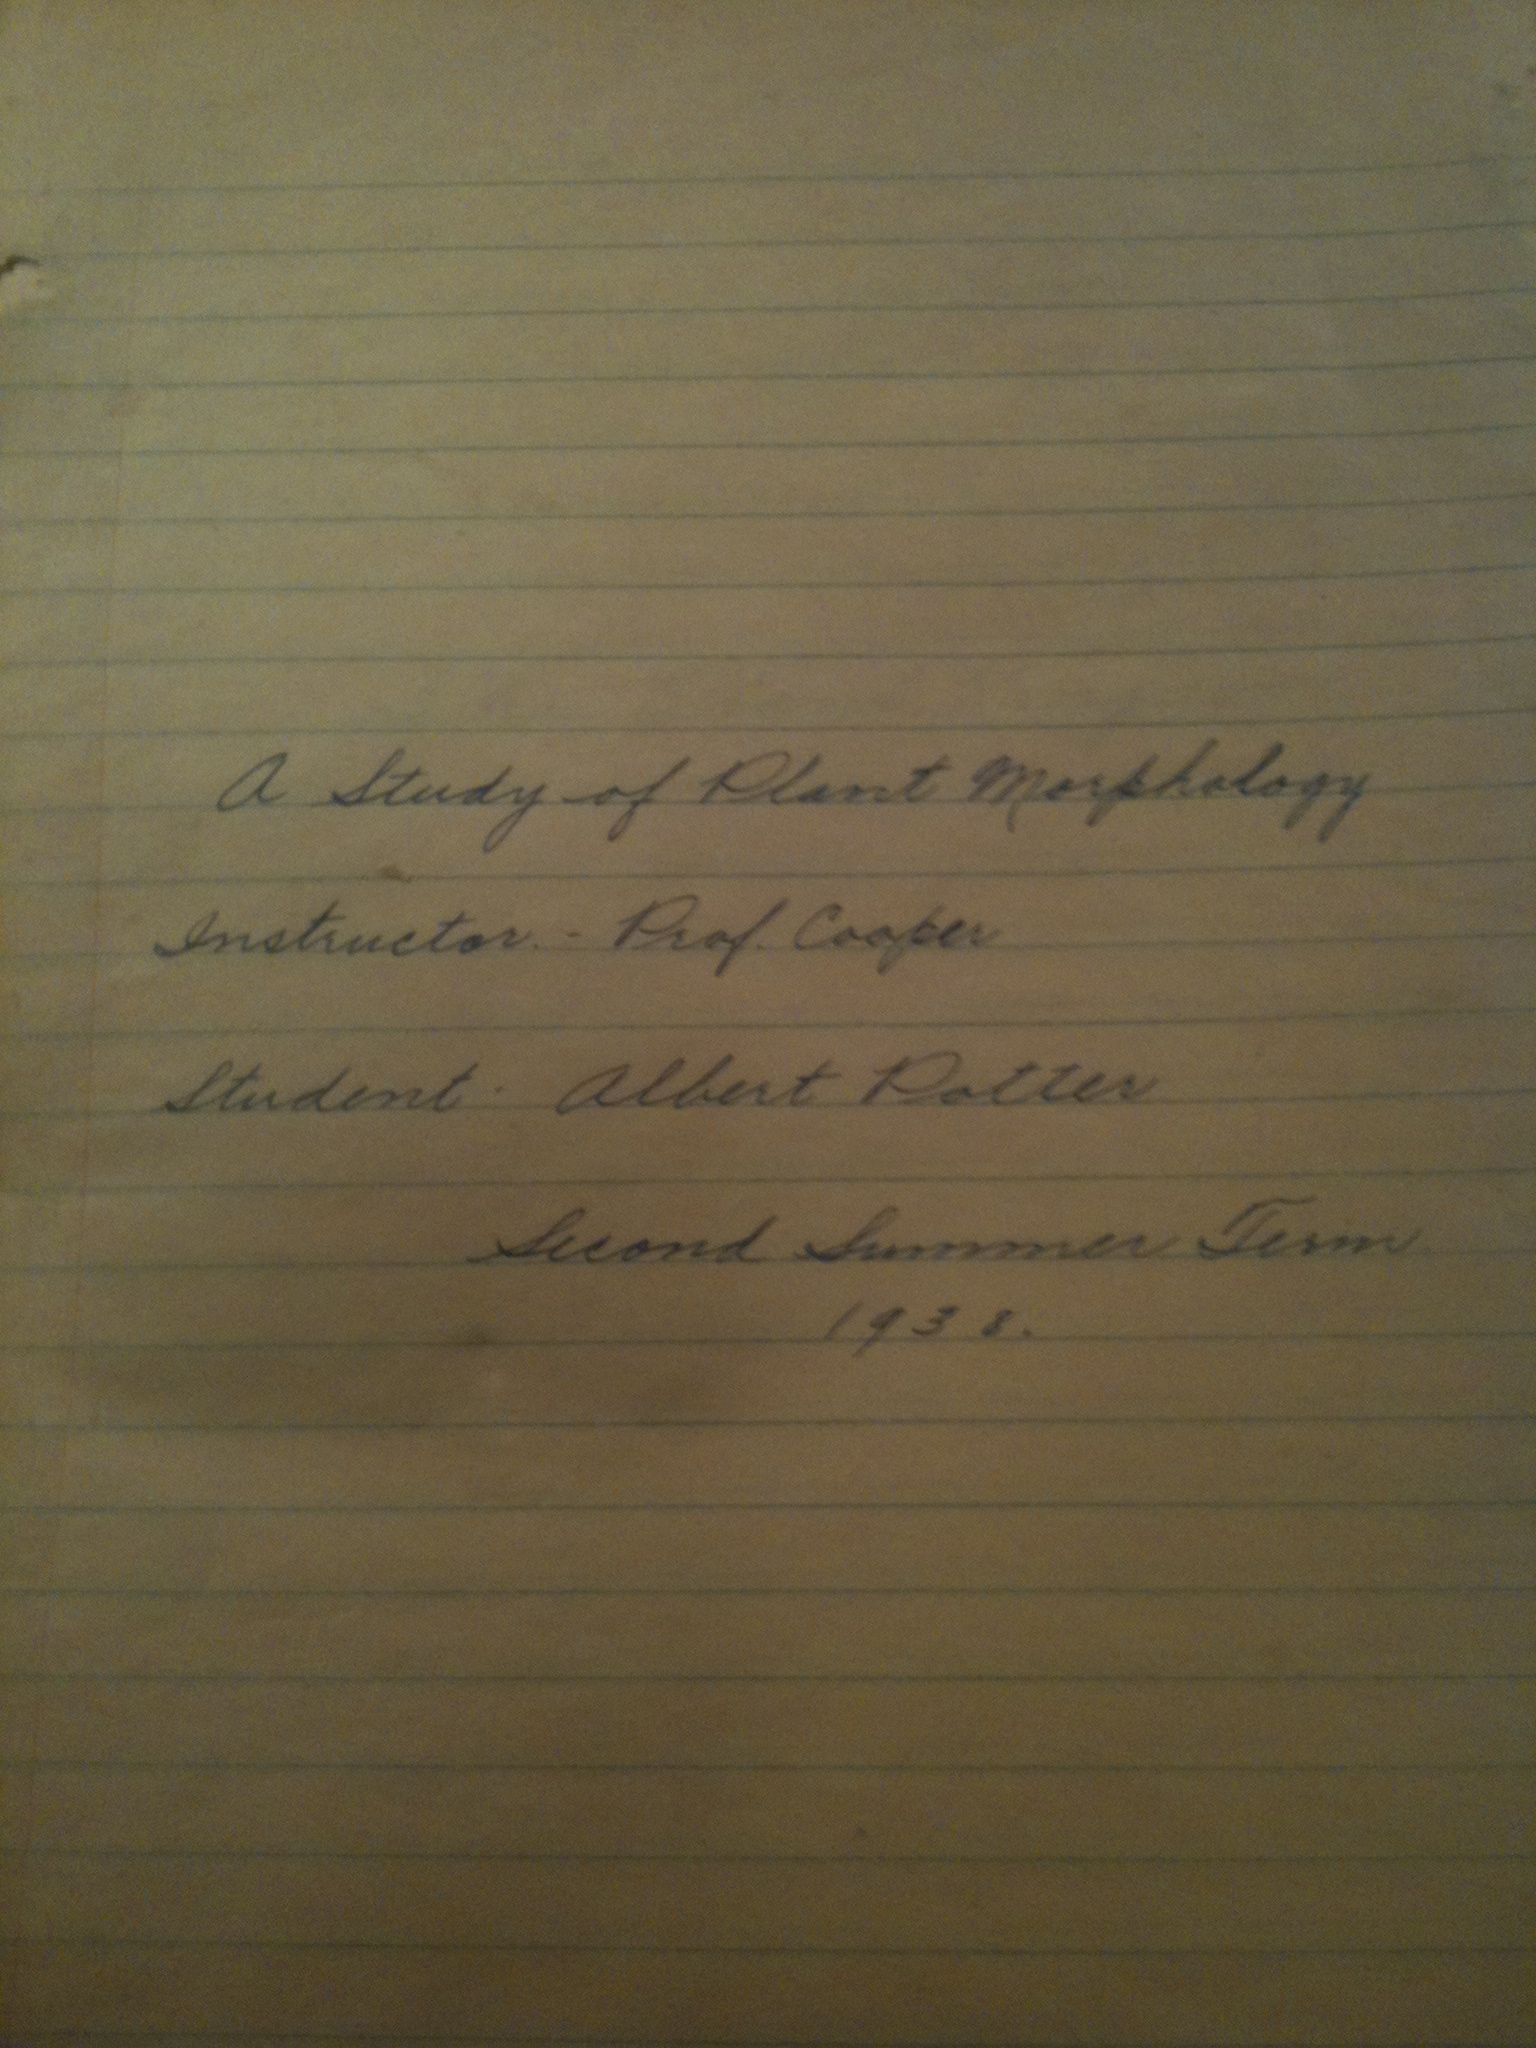 A Study of Plant Morphology
Instructor. - Prof. Cooper
Student. Albert Potter
Second Summer Term
1938.